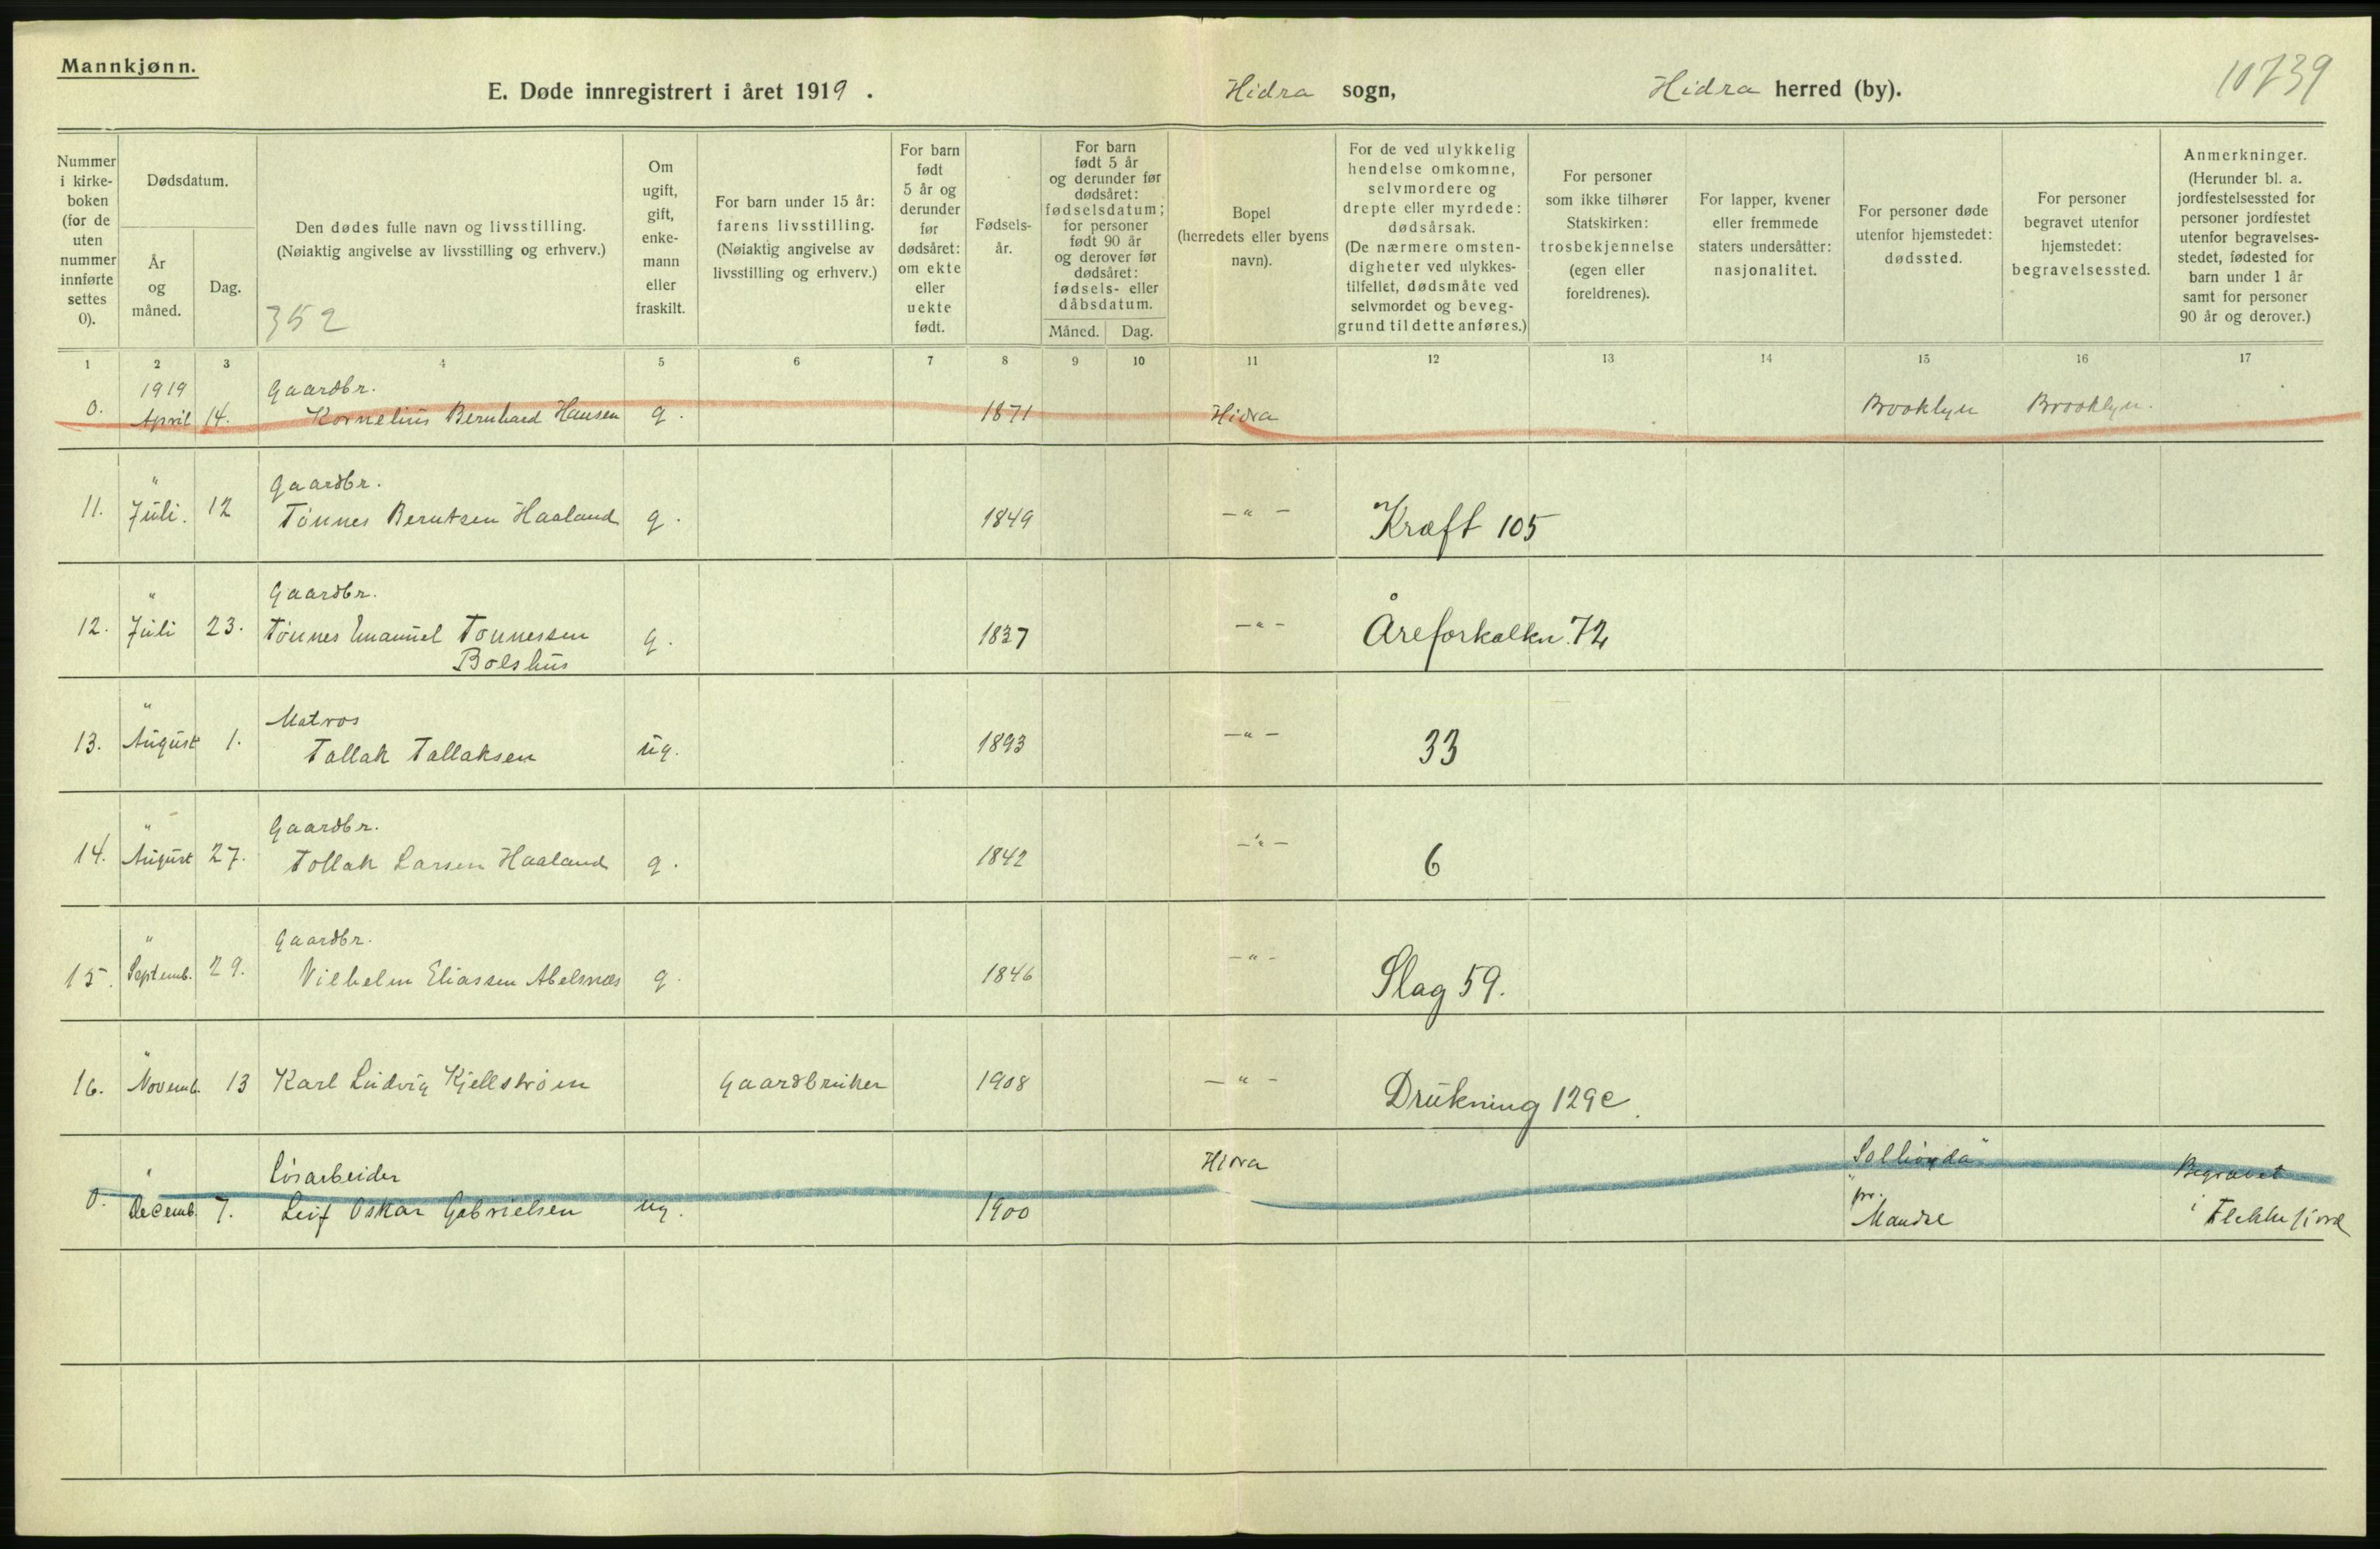 Mannkjønn.
E. Døde innregistrert i året 1919. Hidra sogn, Hidra herred (by). 10739
Nummer i kirke-boken (for de uten nummer innførte settes 0).
Dødsdatum.
År og måned.
Dag.
Den dødes fulle navn og livsstilling.
(Nøiaktig angivelse av livsstilling og erhverv.)
352
Om ugift, gift, enke-mann eller fraskilt.
For barn under 15 år: farens livsstilling. (Nøiaktig angivelse av livsstilling og erhverv.)
For barn født 5 år og derunder før dødsåret: om ekte eller uekte født.
Fødsels-år.
For barn født 5 år og derunder før dødsåret: fødselsdatum; for personer født 90 år og derover før dødsåret: fødsels- eller dåbsdatum.
Måned. Dag.
Bopel (herredets eller byens navn).
For de ved ulykkelig hendelse omkomne, selvmordere og drepte eller myrdede: dødsårsak. (De nærmere omsten-digheter ved ulykkes-tilfellet, dødsmåte ved selvmordet og beveg-grund til dette anføres.)
For personer som ikke tilhører Statskirken: trosbekjennelse (egen eller foreldrenes).
For lapper, kvener eller fremmede staters undersåtter: nasjonalitet.
For personer døde utenfor hjemstedet: dødssted.
For personer begravet utenfor hjemstedet: begravelsessted.
Anmerkninger. (Herunder bl. a. jordfestelsessted for personer jordfestet utenfor begravelses-stedet, fødested for barn under 1 år samt for personer 90 år og derover.)
1 2 3 4 5 6 7 8 9 10 11 12 13 14 15 16 17
1919 Gaardbr.
0. April 14. Kornelius Bernhard Hansen g. 1871 Hidra Brooklyn Brooklyn.
" Gaardbr.
11. Juli. 12 Tönnes Berntsen Haaland g. 1849 —"— Kræft 105
" Gaardbr.
12. Juli 23. Tönnes Emanuel Tönnessen g. 1837 —"— Åreforkalkn. 72
Bolshus
" Matros
13. August 1. Tallak Tallaksen ug. 1893 —"— 33
" Gaardbr.
14. August 27. Tollak Larsen Haaland g. 1842 —"— 6
" Gaardbr.
15. Septemb. 29. Vilhelm Eliassen Abelsnæs g. 1846 —"— Slag 59.
"
16. Novemb. 13 Karl Ludvig Kjellström Gaardbruker 1908 —"— Drukning 129e.
" Lösarbeider Hidra Begravet
0. Decemb. 7. Leif Oskar Gabrielsen ug. 1900 pr. Mandal i Flekkefjord